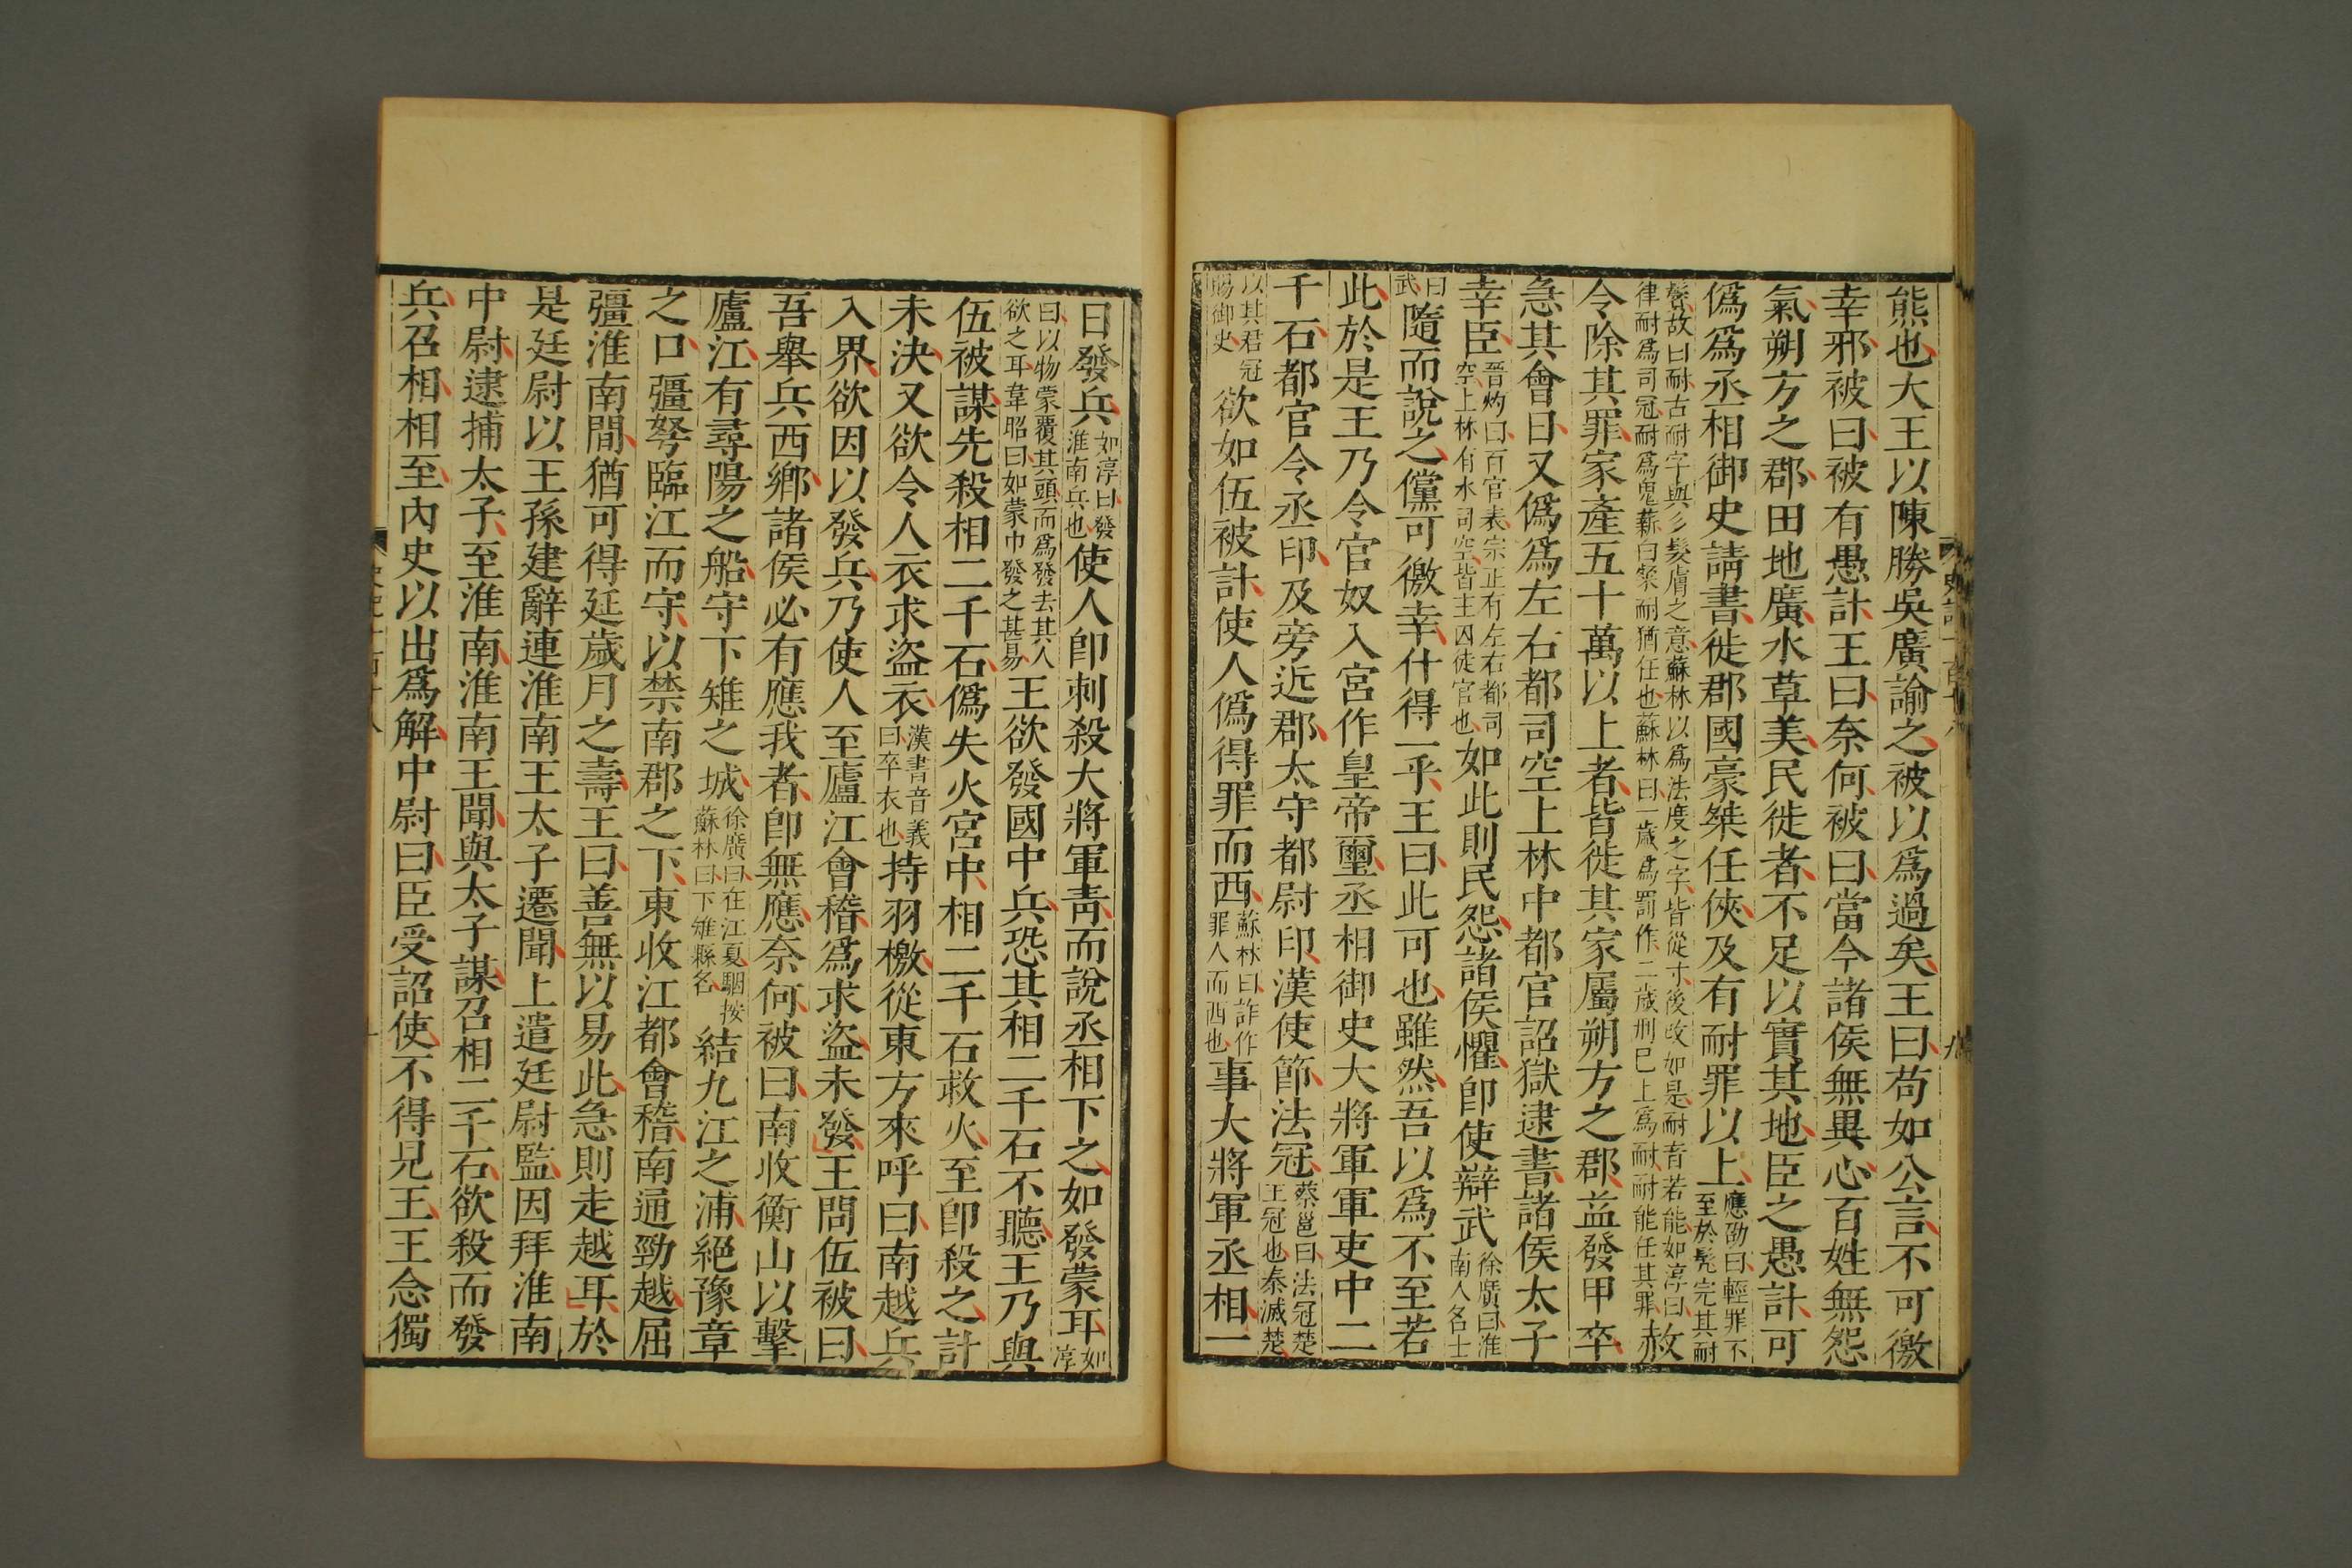 熊也大王以陳勝吳廣諭之被以爲過矣王曰苟如公言不可徼
幸邪被曰被有愚計王曰奈何被曰當今諸侯無異心百姓無怨
氣朔方之郡田地廣水草美民徙者不足以實其地臣之愚計可
僞爲丞相御史請書徙郡國豪桀任俠及有耐罪以上應劭曰輕罪不至於髡完其耐
鬢故曰耐古耐字與彡髮膚之意蘇林以爲法度之字皆從寸後改如是耐音若能如淳曰律耐爲司冠耐爲鬼薪白粲耐猶任也蘇林曰一歲爲罰作二歲刑已上爲耐耐能任其罪赦
令除其罪家產五十萬以上者皆徙其家屬朔方之郡益發甲卒
急其會日又僞爲左右都司空上林中都官詔獄逮書諸侯太子
幸臣晉灼曰百官表宗正有左右都司空上林有水司空皆主囚徒官也如此則民怨諸侯懼卽使辯武徐廣曰淮南人名士
曰武隨而說之儻可徼幸什得一乎王曰此可也雖然吾以爲不至若
此於是王乃令官奴入宮作皇帝璽丞相御史大將軍軍吏中二
千石都官令丞印及旁近郡太守都尉印漢使節法冠蔡邕曰法冠楚王冠也秦滅楚
以其君冠賜御史欲如伍被計使人僞得罪而西蘇林曰詐作罪人而西也事大將軍丞相一
日發兵如淳曰發淮南兵也使人卽刺殺大將軍青而說丞相下之如發蒙耳如淳
曰以物蒙覆其頭而爲發去其人欲之耳韋昭曰如蒙巾發之甚易王欲發國中兵恐其相二千石不聽王乃與
伍被謀先殺相二千石僞失火宮中相二千石救火至卽殺之計
未決又欲令人衣求盜衣漢書音義曰卒衣也持羽檄從東方來呼曰南越兵
入界欲因以發兵乃使人至廬江會稽爲求盜未發王問伍被曰
吾舉兵西鄉諸侯必有應我者卽無應奈何被曰南收衡山以擊
廬江有尋陽之船守下雉之城徐廣曰在江夏駰按蘇林曰下雉縣名結九江之浦絕豫章
之口彊弩臨江而守以禁南郡之下東收江都會稽南通勁越屈
彊淮南間猶可得延歲月之壽王曰善無以易此急則走越耳於
是廷尉以王孫建辭連淮南王太子遷聞上遣廷尉監因拜淮南
中尉逮捕太子至淮南淮南王聞與太子謀召相二千石欲殺而發
兵召相相至內史以出爲解中尉曰臣受詔使不得見王王念獨
史記一百十八
九